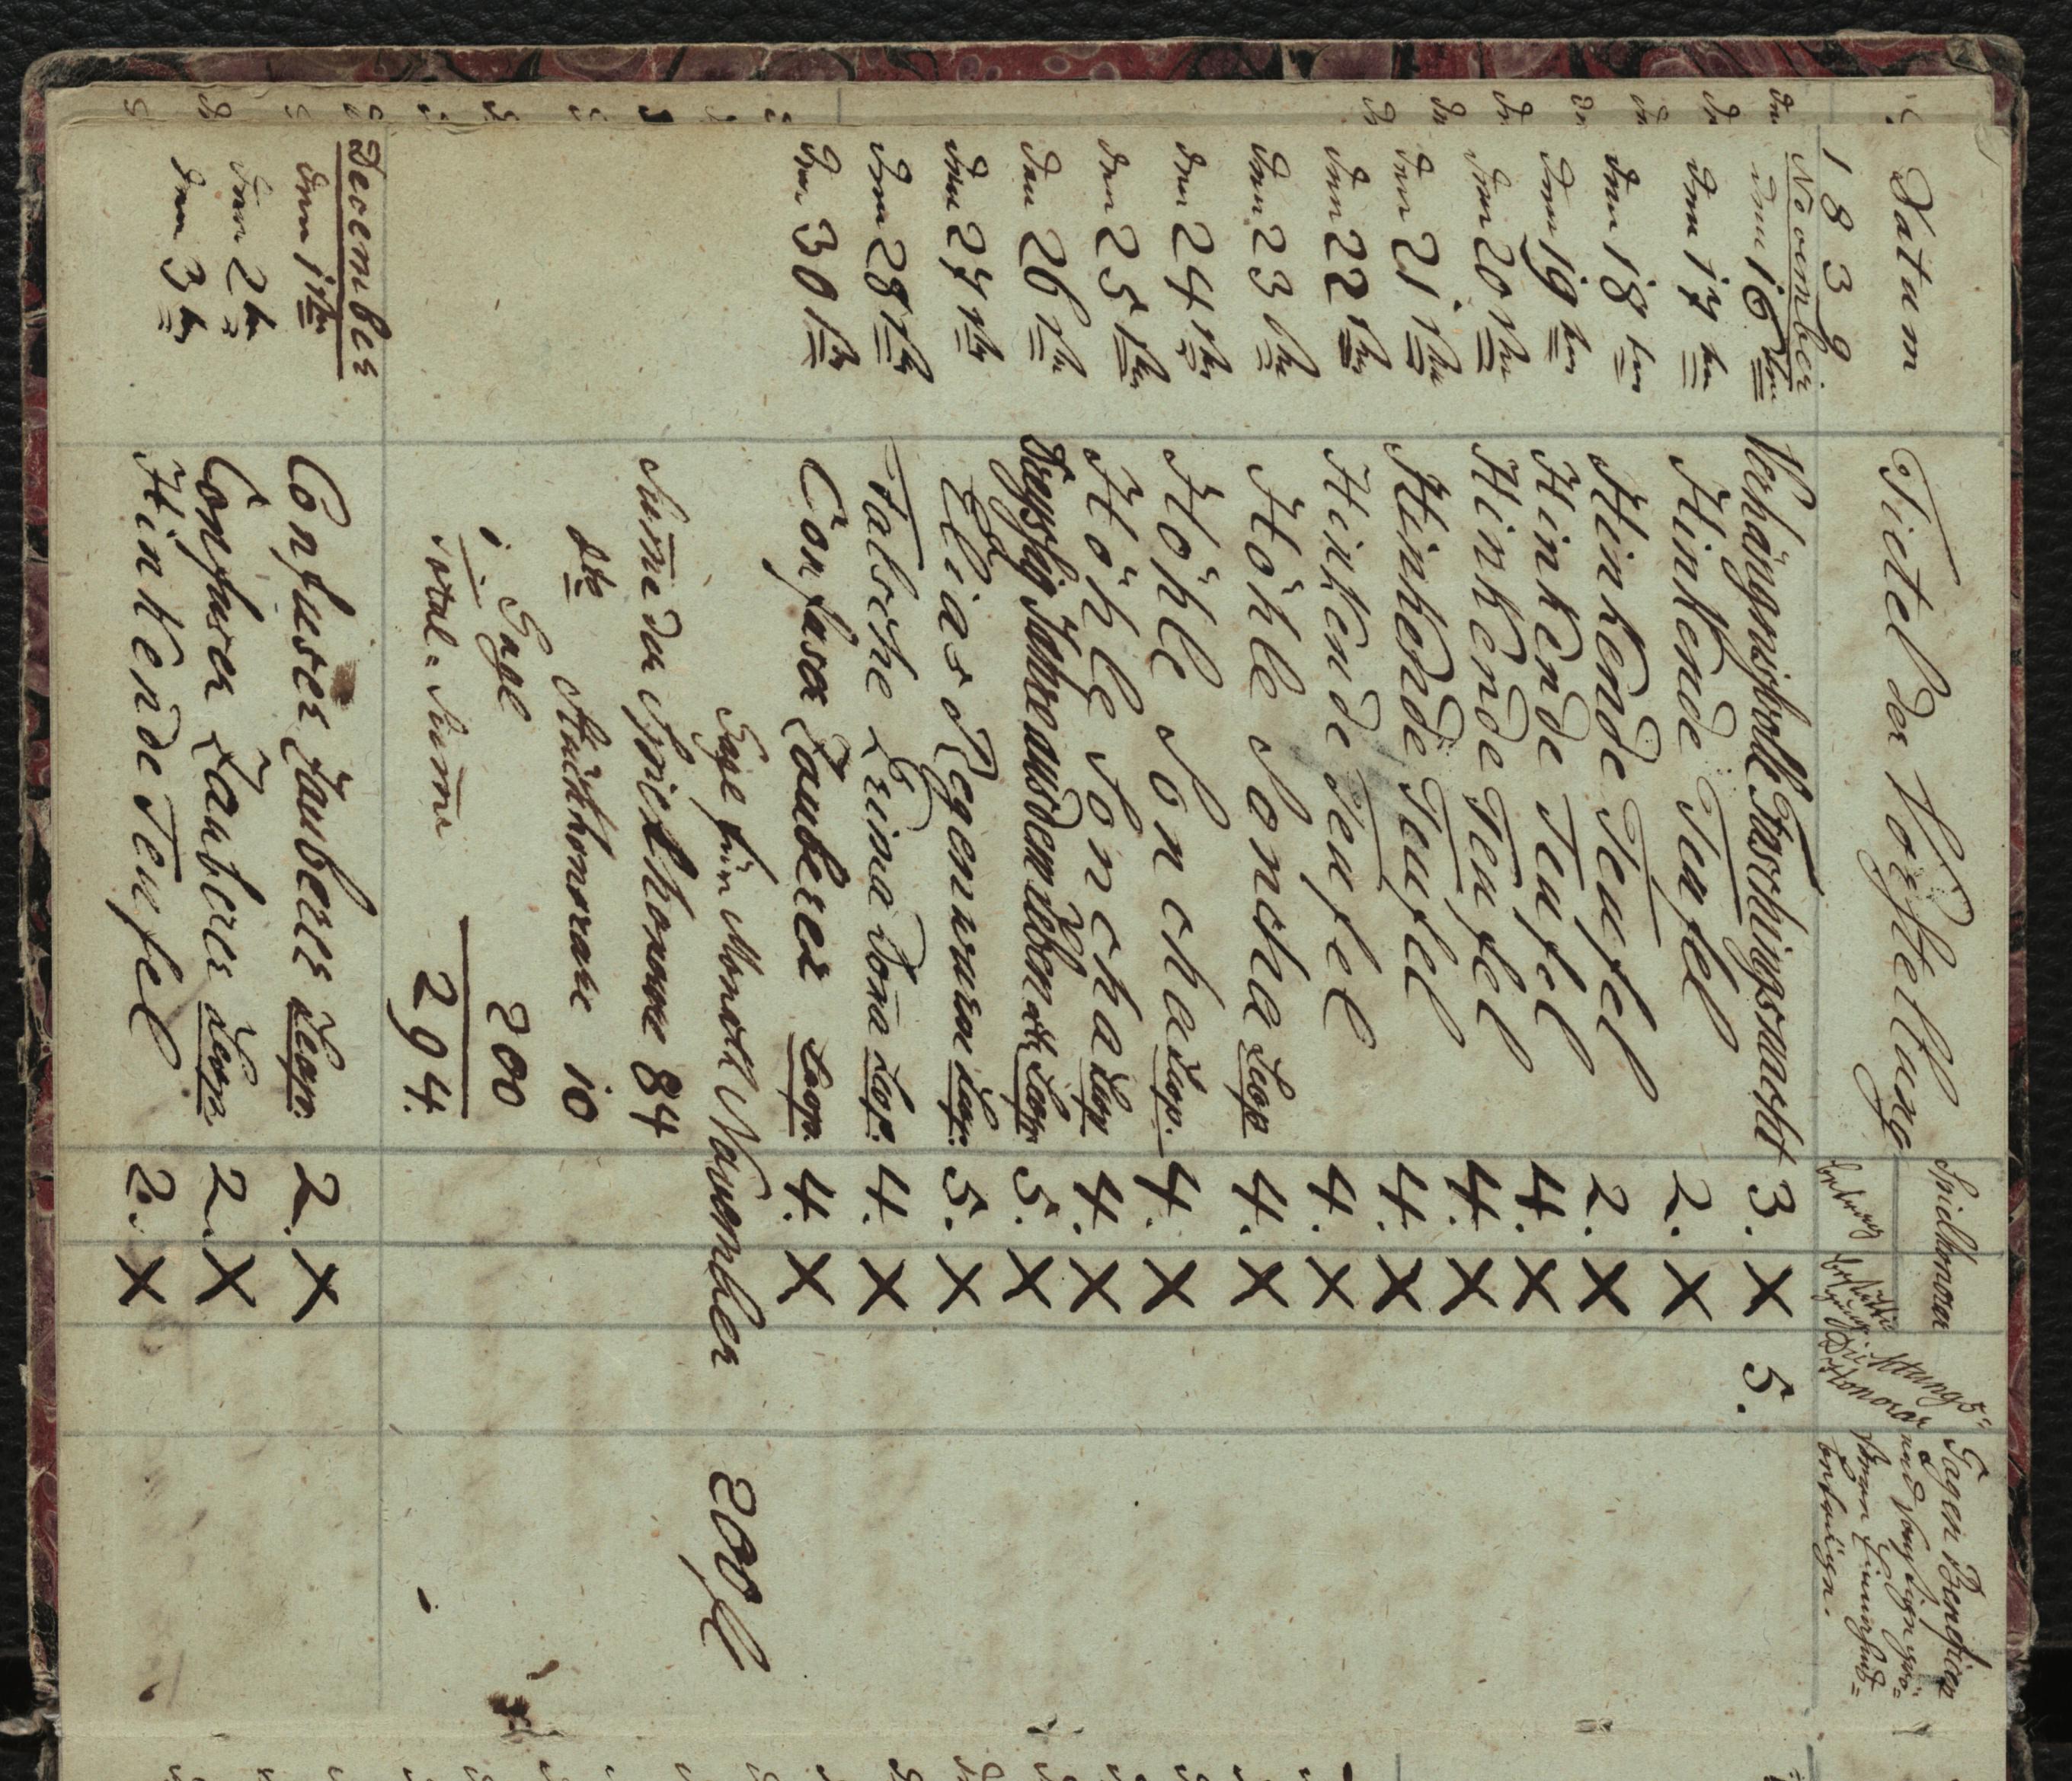 Datum Titel der Vorstellung Spielhonorar
Gagen Benefice
und sonstigen
betrag
Dichtungs=
Honorar
1839
November
den 16ten Verhängnißvolle Faschingsnacht 3. X 5.
den 17ten Hinkende Teufel 2. X
den 18ten Hinkende Teufel 2. X
den 19ten Hinkende Teufel 4. X
den 20ten Hinkende Teufel 4. X
den 21ten Hinkende Teufel 4. X
den 22ten Hinkende Teufel 4. X
den 23ten Höhle Soncha Leop 4. X
den 24ten Höhle Soncha Leop. 4. X
den 25ten Höhle Soncha Leop 4. X
den 26ten Dreyßig Jahre aus dem Leben Leop. 5. X
den 27ten Elias Regenwurm Leop. 5. X
den 28ten Falsche Prima Dona Leop. 4. X
den 30ten Confuser Zauberer Leop. 4. X
Gage für Monath November 200 fl
Suma der Spielhonorare 84
dto Stückhonorare 10
Gage 200
total=Suma 294.
December
den 1ten Confuser Zauberer Leop. 2. X
den 2ten Confuser Zauberer Leop. 2. X
den 3ten Hinkende Teufel 2. X